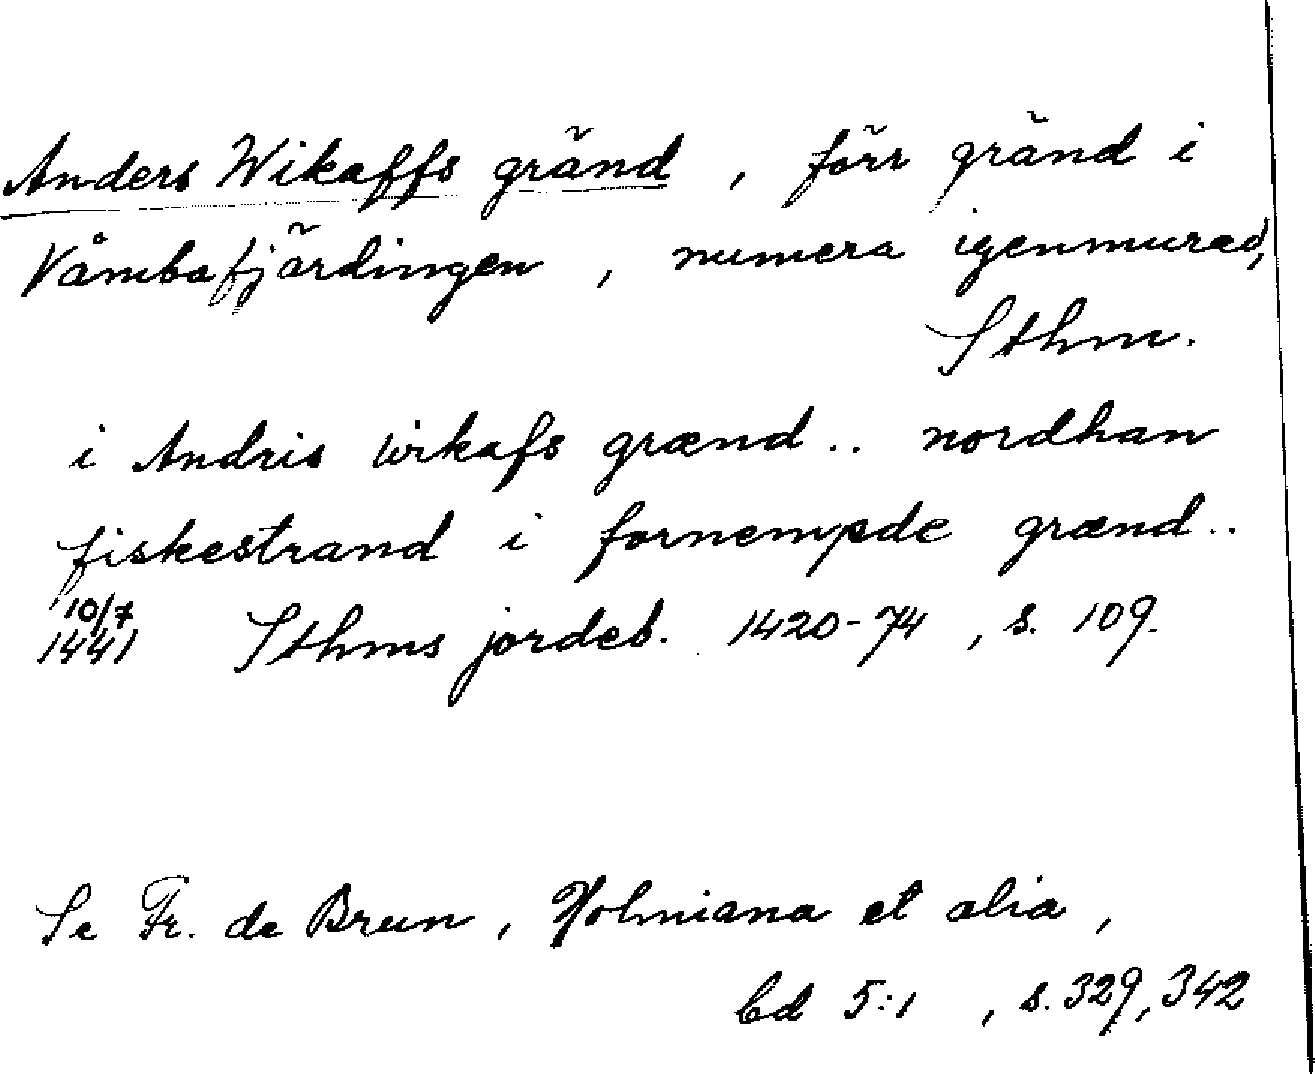 Anders Wikaffs gränd, förr gränd i
Våmbafjärdingen, numera igenmurad,
Sthm.
i Andris wikafs grænd.. nordhan
fiskestrand i fornempde grænd..
10/7
1441 Sthms jordeb. 1420-74, s. 109.
Se Fr. de Brun, Holmiana et alia,
bd 5:1, s. 329, 342